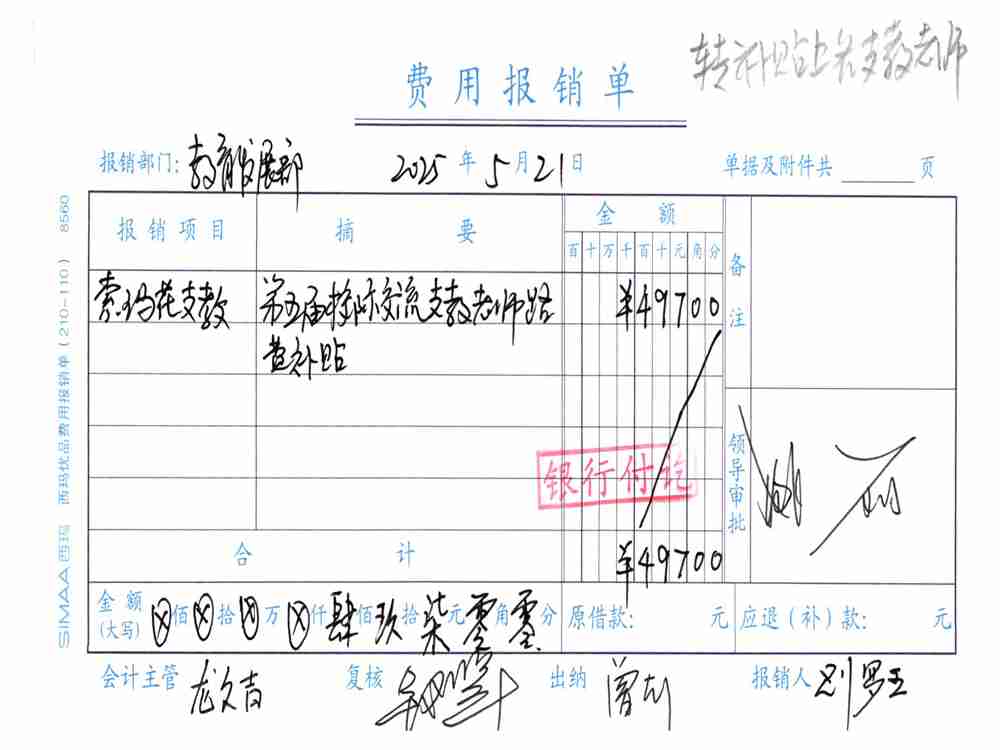 转补贴上长支教老师
费用报销单
报销部门: 教育发展部 2025年5月21日 单据及附件共 页
报销项目 摘要 金额 备注
百十万千百十元角分
索玛花支教 第五届校际交流支教老师路 ¥49700
费补贴
银行付讫
领导审批
合计 ¥49700
金额(大写) ⊗佰⊗拾⊗万⊗仟肆佰玖拾柒元零角零分 原借款: 元 应退(补)款: 元
会计主管 龙文吉 复核 出纳 曾 报销人 罗王
SIMAA西玛 西玛优品费用报销单(210-110) 8560